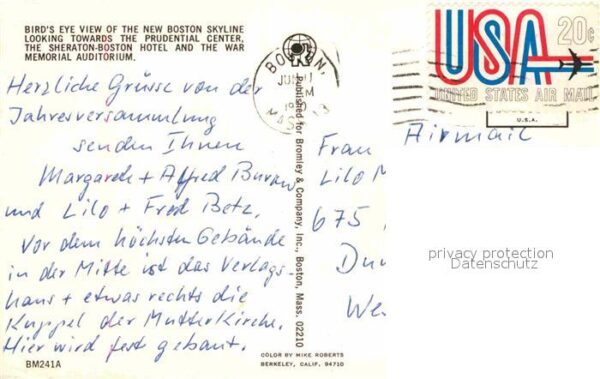 BIRD'S EYE VIEW OF THE NEW BOSTON SKYLINE
LOOKING TOWARDS THE PRUDENTIAL CENTER,
THE SHERATON-BOSTON HOTEL AND THE WAR
MEMORIAL AUDITORIUM.
Herzliche Grüsse von der
Jahresversammlung
senden Ihnen
Margareth + Alfred
und Lilo + Fred Betz.
Vor dem höchsten Gebäude
in der Mitte ist das Verlags-
haus + etwas rechts die
Kuppel der Mutterkirche.
Hier wird fest gebaut.
BM241A
Published for Bromley & Company, Inc., Boston, Mass. 02210
COLOR BY MIKE ROBERTS
BERKELEY, CALIF. 94710
BOSTON,
USA 20c
UNITED STATES AIR MAIL
U.S.A.
Airmail
Frau
Lilo M
675
privacy protection
Datenschutz
We